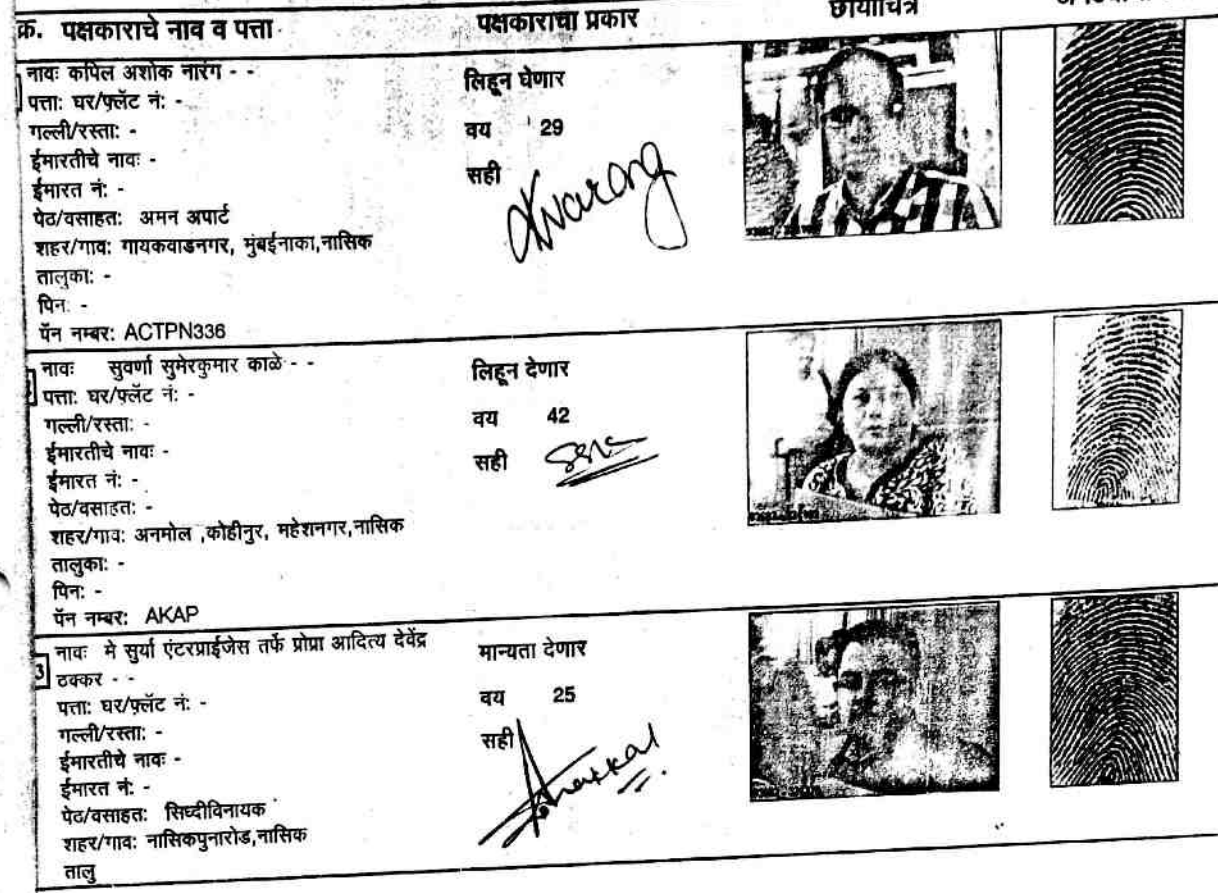 क्र. पक्षकाराचे नाव व पत्ता पक्षकाराचा प्रकार छायाचित्र
नावः कपिल अशोक नारंग - -
पत्ता: घर/फ़्लॅट नं: -
गल्ली/रस्ता: -
ईमारतीचे नावः -
ईमारत नं: -
पेठ/वसाहत: अमन अपार्ट
शहर/गाव: गायकवाडनगर, मुंबईनाका,नासिक
तालुका: -
पिन: -
पॅन नम्बर: ACTPN336
लिहून घेणार
वय 29
सही
नावः सुवर्णा सुमेरकुमार काळे - -
पत्ता: घर/फ़्लॅट नं: -
गल्ली/रस्ता: -
ईमारतीचे नावः -
ईमारत नं: -
पेठ/वसाहत: -
शहर/गाव: अनमोल ,कोहीनुर, महेशनगर,नासिक
तालुका: -
पिन: -
पॅन नम्बर: AKAP
लिहून देणार
वय 42
सही
3 नावः मे सुर्या एंटरप्राईजेस तर्फे प्रोप्रा आदित्य देवेंद्र
ठक्कर - -
पत्ता: घर/फ़्लॅट नं: -
गल्ली/रस्ता: -
ईमारतीचे नावः -
ईमारत नं: -
पेठ/वसाहत: सिध्दीविनायक
शहर/गाव: नासिकपुनारोड,नासिक
तालु
मान्यता देणार
वय 25
सही